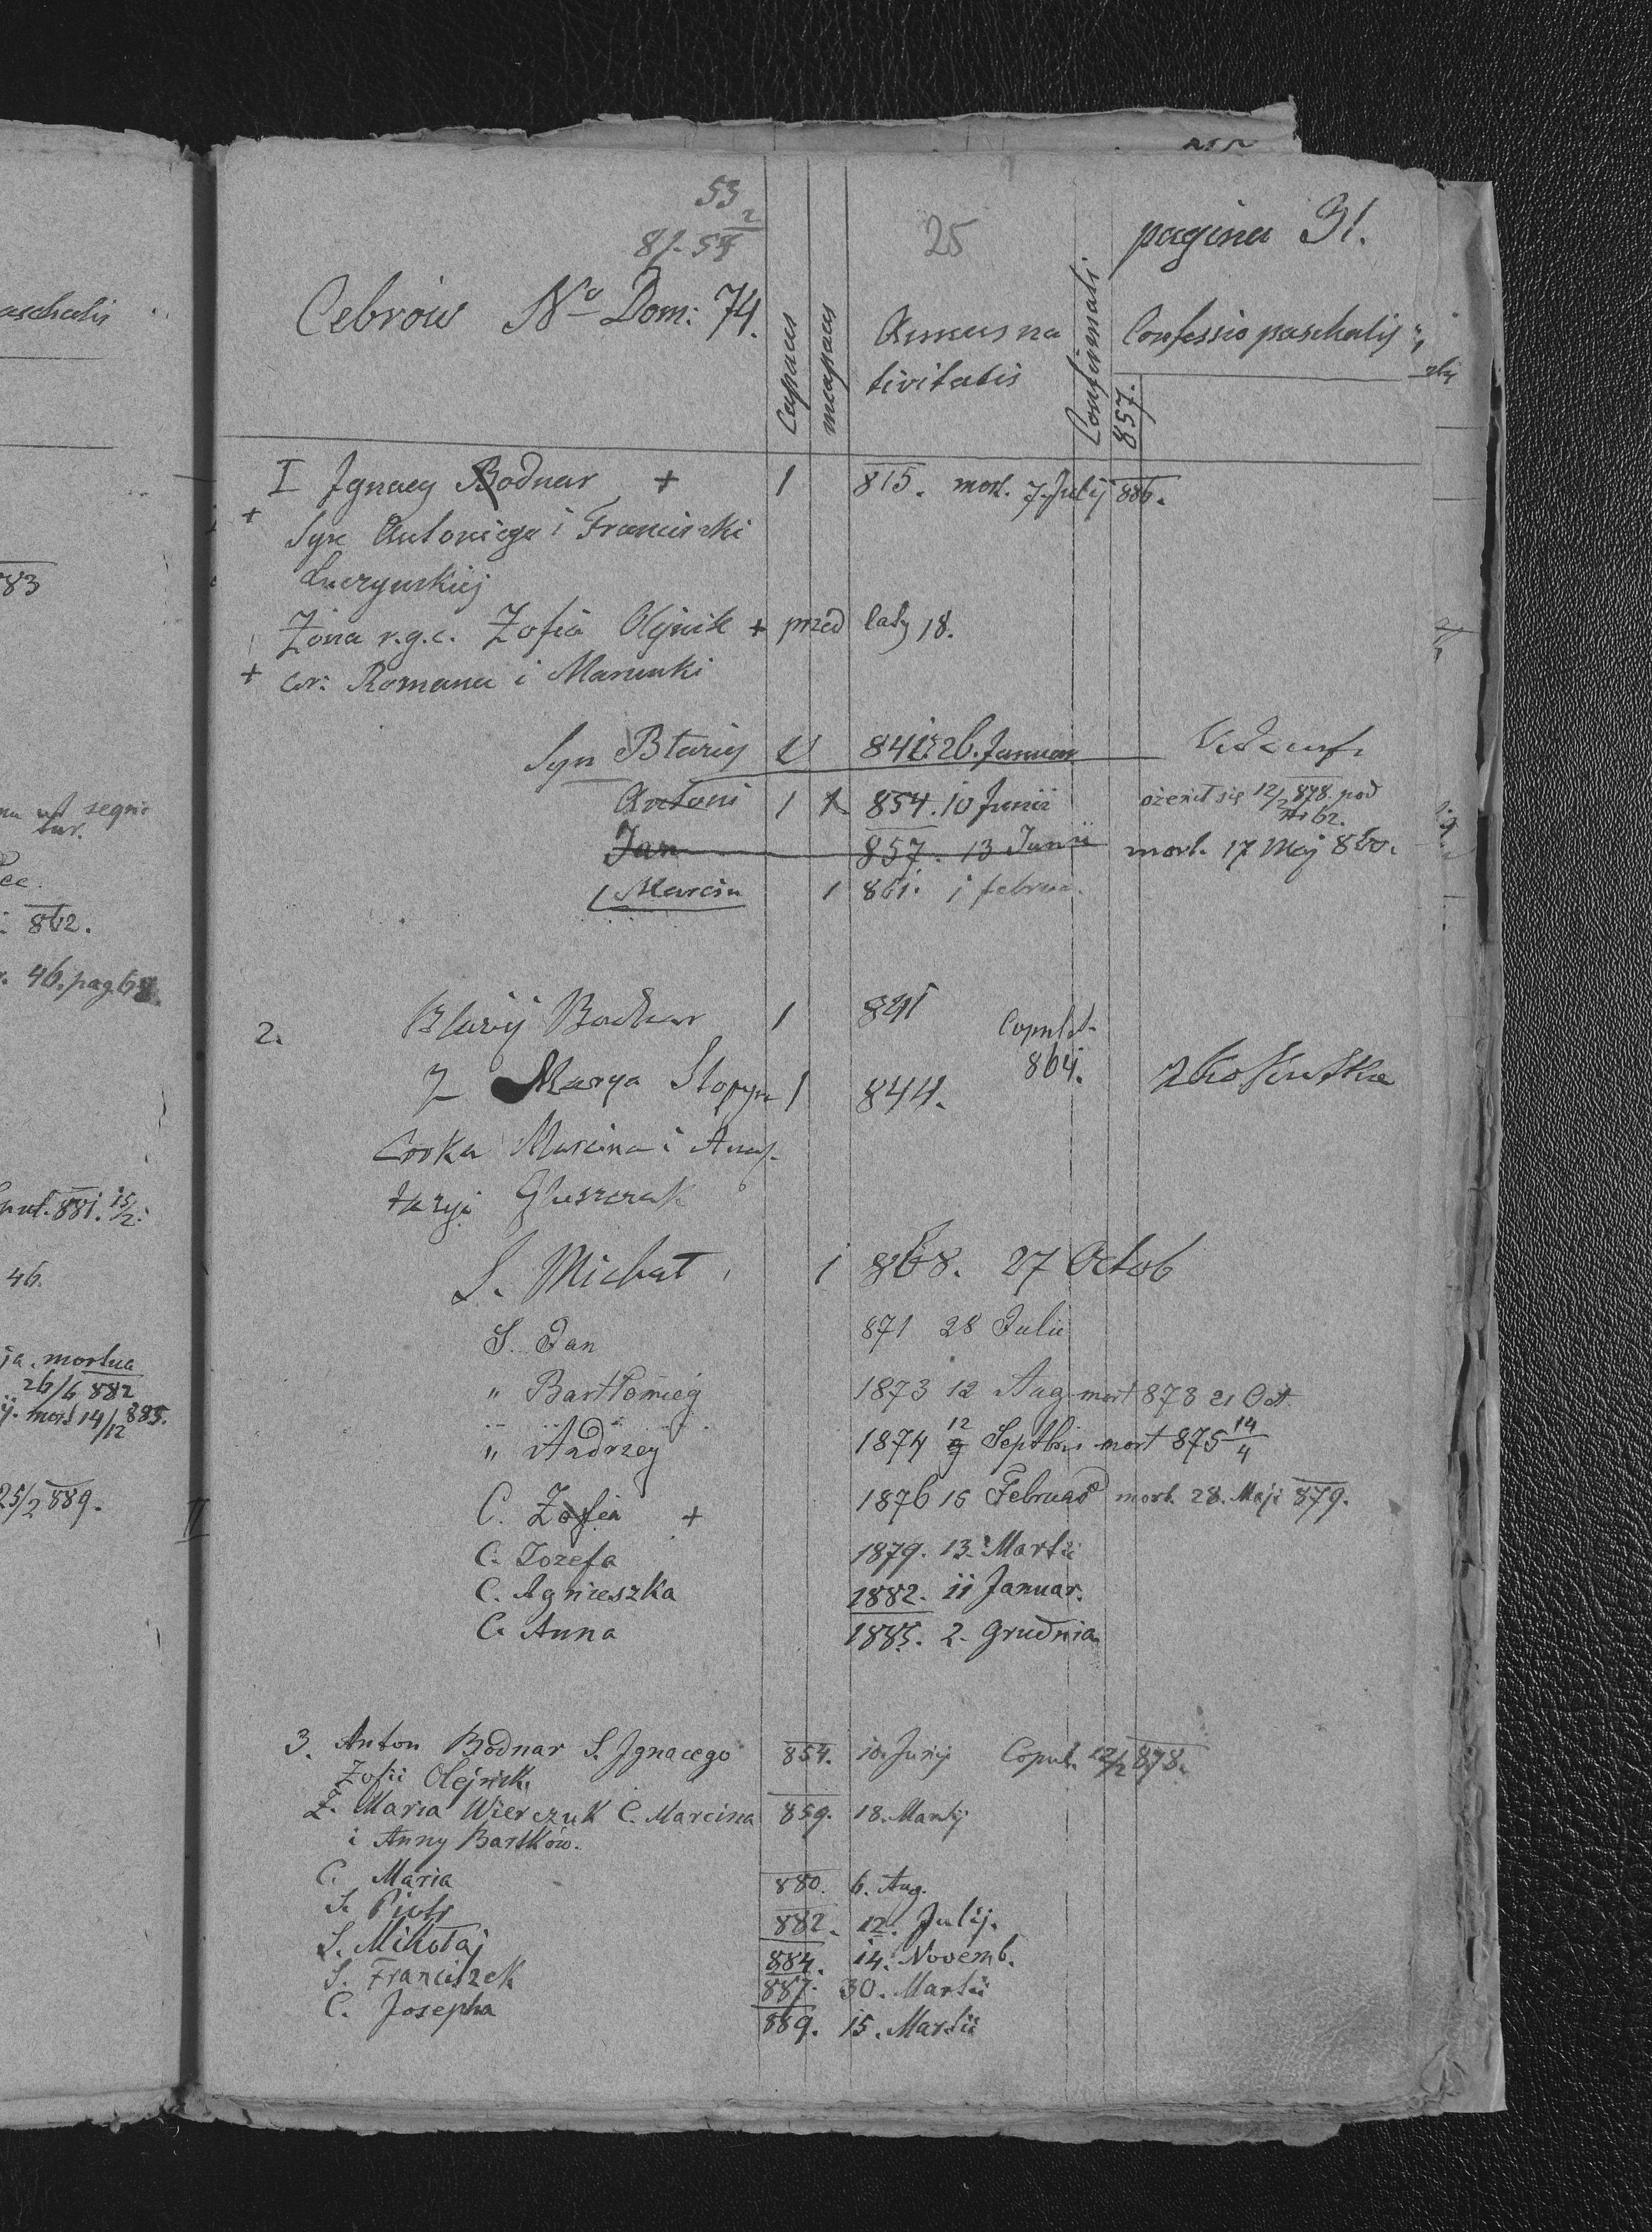 aschalis
883
ma ut segni
tur.
862.
46. pag. 68.
pul. 881. 15/2.
46.
ja. mortua
26/6 882
mort 14/12 885.
25/2 889.
II
53
2
81-55
25
pagina 31.
Cebrów No Dom: 74.
Capaces
incapaces
Annus na
tivitatis
Confirmati
Confessio paschalis
857.
I Ignacy Bodnar + 1 815. mort. 7. Julij 886.
+ Syn Antoniego i Franciszki
Luczynskiej
Żona r.g.c. Zofia Olejnik + przed laty 18.
+ cór: Romana i Marunki
Syn Błarzej 1 841. 26. Januar Vide infr.
Antoni 1 1 854. 10 Junii ożenił się 12/2 878. pod
No 62.
Jan 857. 13 Junii mort. 17 Maj 860.
Marcin 1 861. 1 februa.
2. Błażij Bodnar 1 841
Copulat.
864.
Ż Marya Slopyn 1 844.
Corka Marcina i Anas-
tazyi Gluszczak
S. Michał 1 868. 27 Octob
S. Jan 871 28 Julii
" Bartłomiej 1873 12 Aug mort 873 21 Oct.
" Andrzej 1874 12 9 Septbris mort 875 14/4
C. Zofia + 1876 15 Februar mort. 28. Maji 879.
C. Jozefa 1879. 13. Martii
C. Agnieszka 1882. 11 Januar.
C. Anna 1885. 2. Grudnia
3. Anton Bodnar S. Ignacego 854. 10. Junij Copul. 12/2 878.
Zofii Olejnik.
Ż. Maria Wierczuk C. Marcina 859. 18. Martij
i Anny Bartków.
C. Maria 880. 6. Aug.
S. Piotr 882. 12. Julij.
S. Mikołaj 884. 14. Novemb.
S. Franciszek 887. 30. Martii
C. Josepha 889. 15. Martii